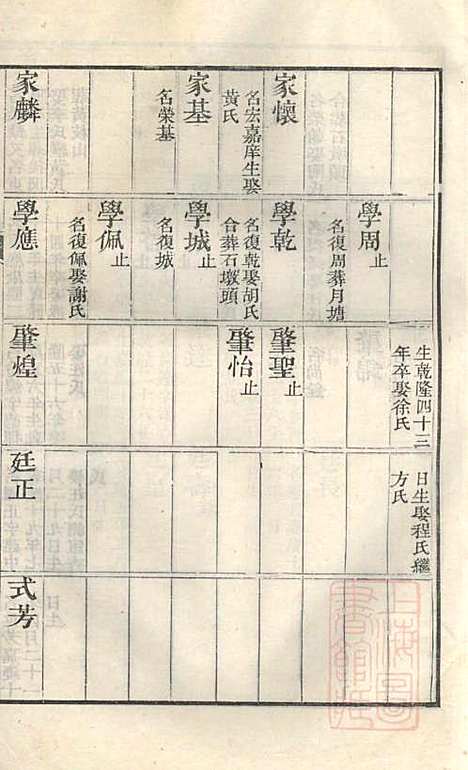 家懷
名宏嘉庠生娶
黃氏
家基
名榮基
家麟
學周止
名復周葬月塘
學乾
名復乾娶胡氏
合葬石墩頭
學城止
名復城
學佩止
名復佩娶謝氏
學應
生乾隆四十三
年卒娶徐氏
肇聖止
肇怡止
肇煌
日生娶程氏繼
方氏
廷正
式芳
上海圖
書館藏